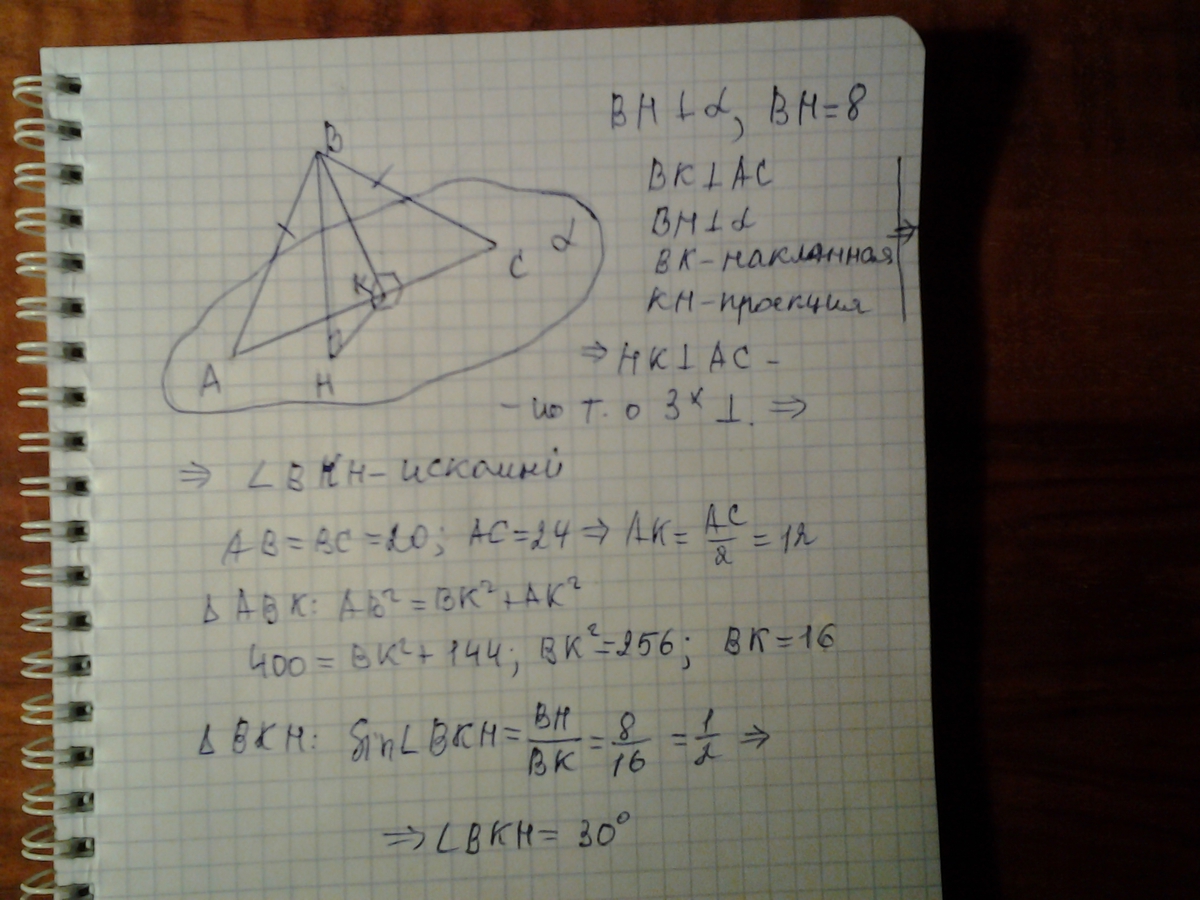 B
C
α
K
A
H
BH ⊥ α, BH = 8
BK ⊥ AC
BH ⊥ α
BK - наклонная
KH - проекция
⇒
⇒ HK ⊥ AC -
- по т. о 3ˣ ⊥. ⇒
⇒ ∠BKH - искомый
AB = BC = 20; AC = 24 ⇒ AK = AC/2 = 12
Δ ABK: AB² = BK² + AK²
400 = BK² + 144; BK² = 256; BK = 16
Δ BKH: Sin∠BKH = BH/BK = 8/16 = 1/2 ⇒
⇒ ∠BKH = 30°